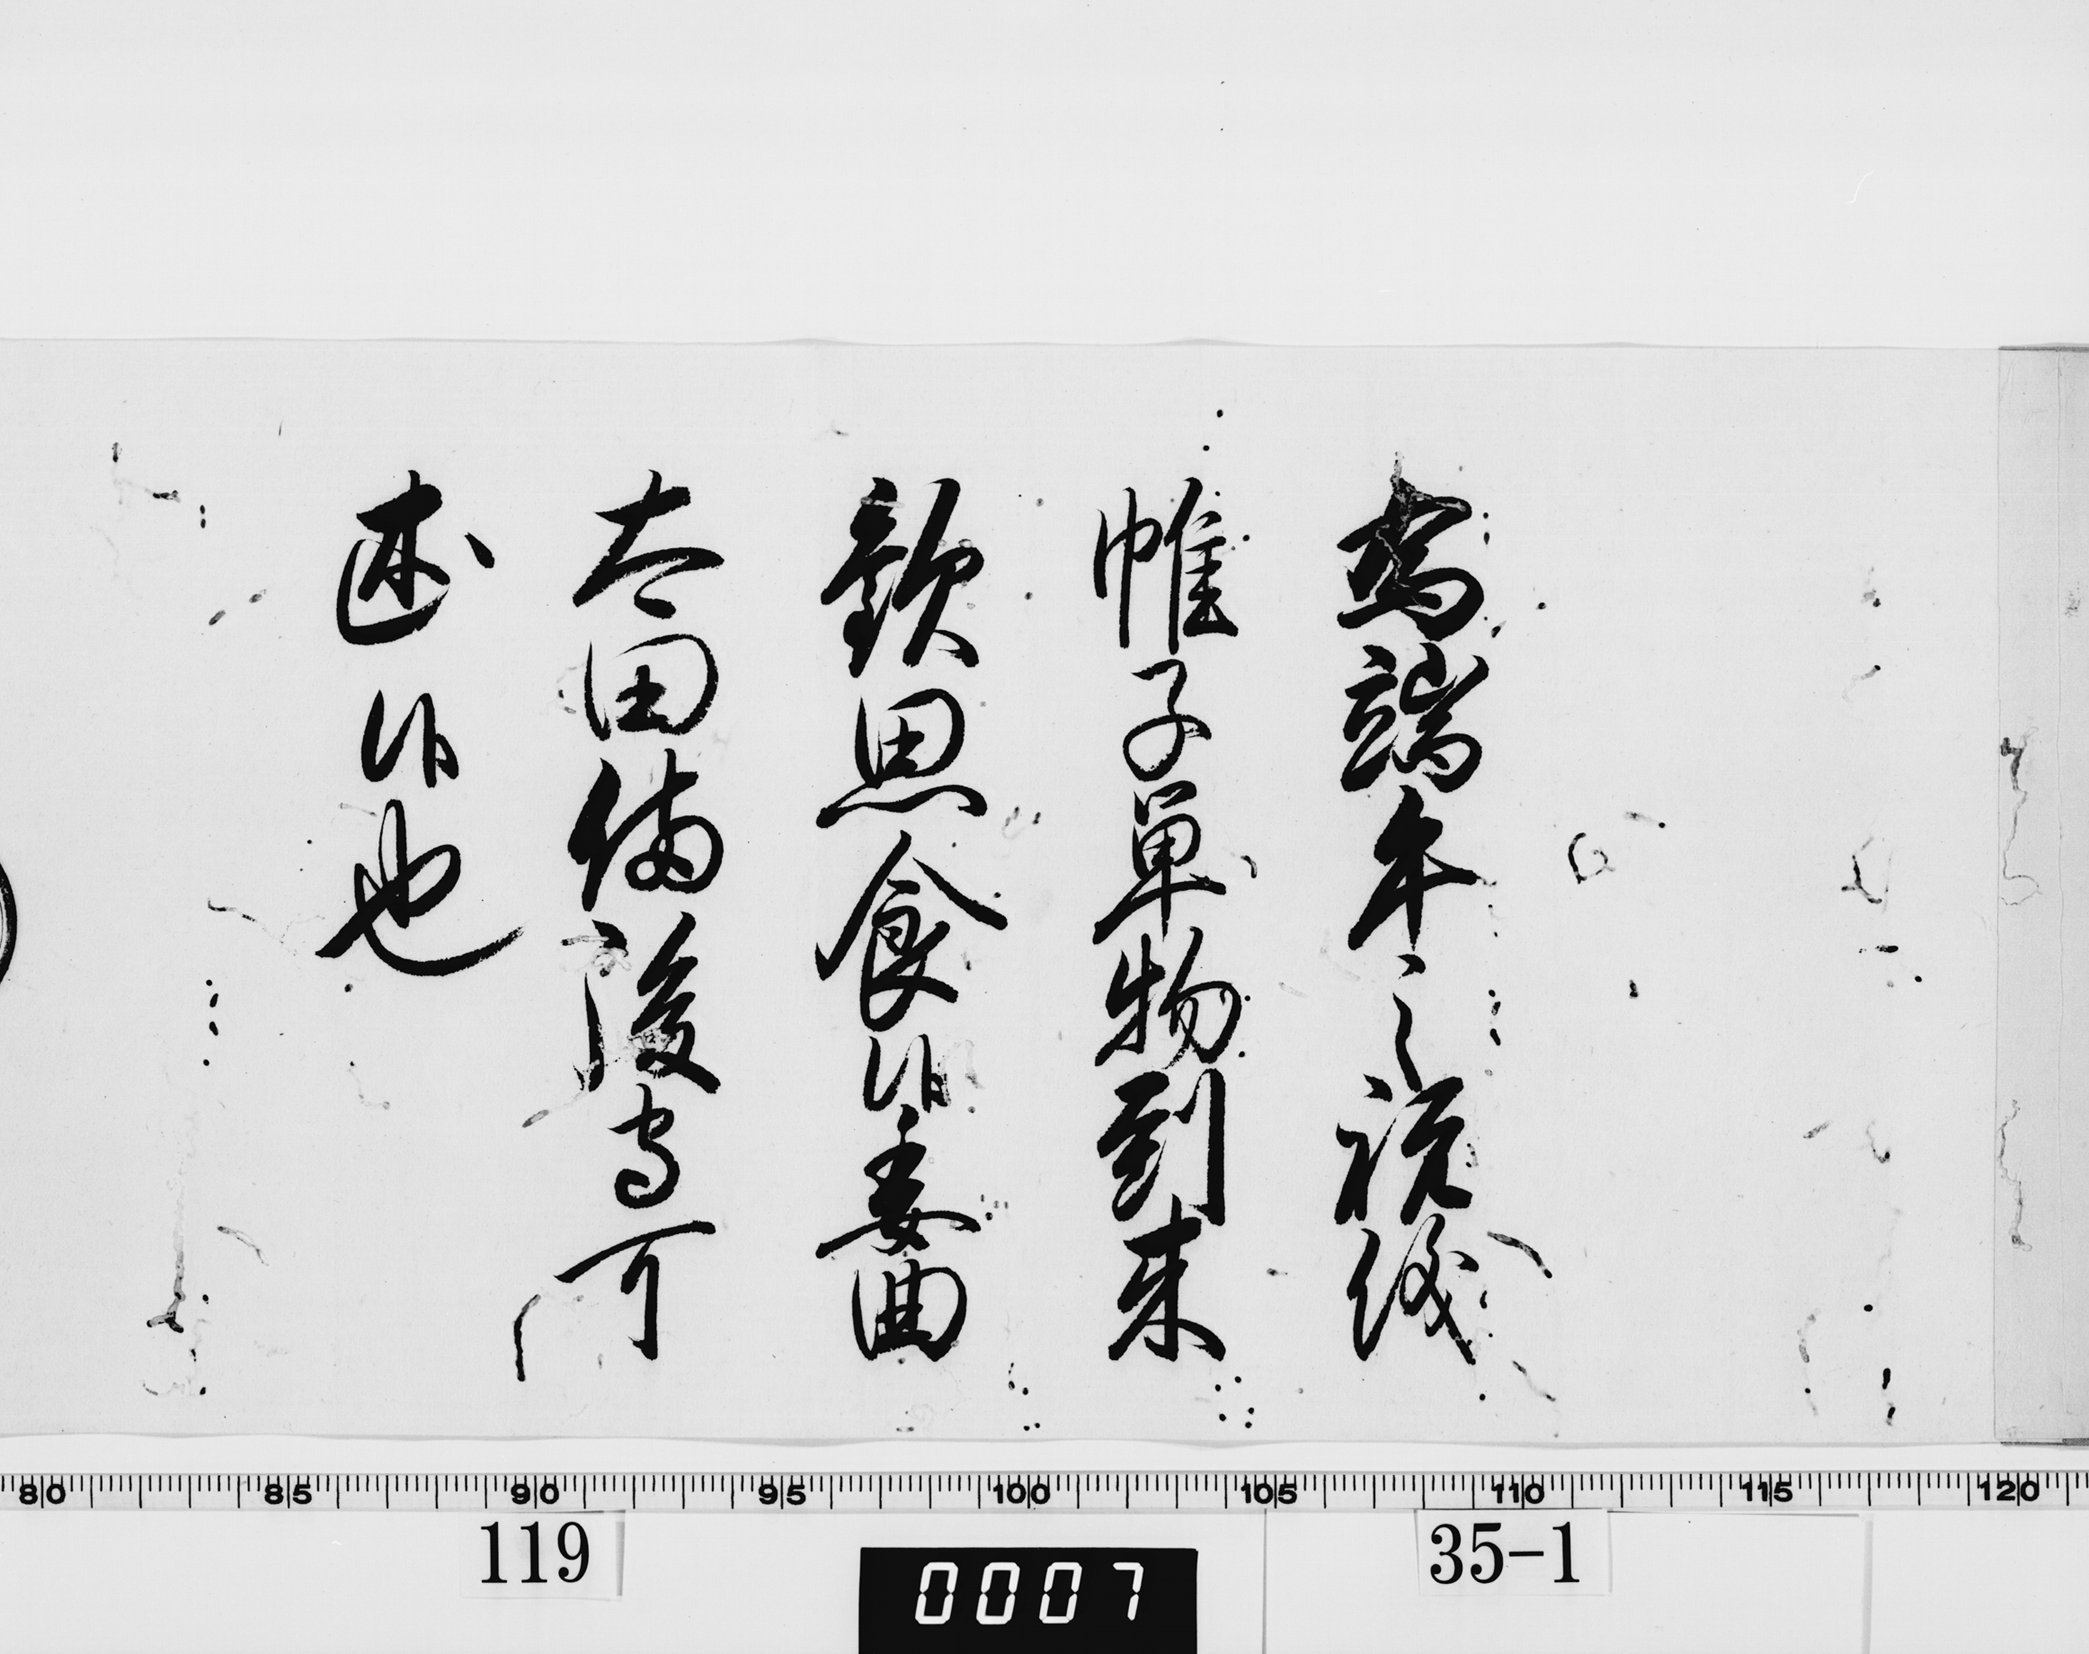 為端午之祝儀
帷子単物到来
歓思食候委曲
太田備後守可
述候也
80 85 90 95 100 105 110 115 120
119
0007
35-1